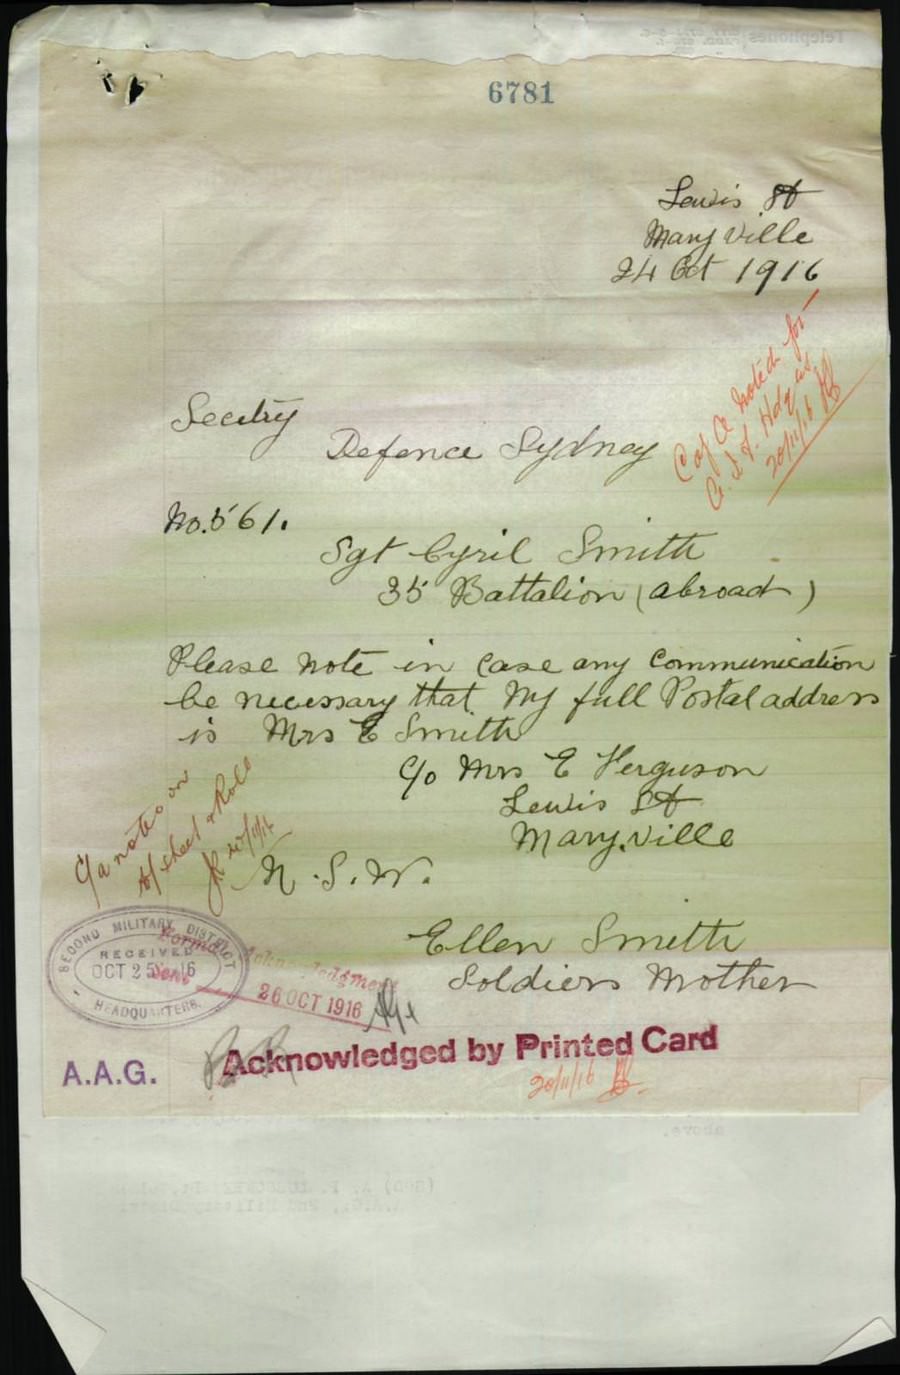 6781
Lewis St
Mary Ville
24 Oct 1916
C of A noted for
A. I. F. Hdqas
20/11/16
Secetry
Defence Sydney
No. 561.
Sgt Cyril Smith
35 Battalion (abroad)
Please note in case any communication
be necessary that My full Postal address
is Mrs E Smith
c/o Mrs E Ferguson
Lewis St
Mary.ville
N.S.W.
C/a noted on
A/sheet & Roll
Ellen Smith
Soldiers Mother
SECOND MILITARY DISTRICT
RECEIVED
OCT 25 1916
HEADQUARTERS.
Formal Acknowledgment
Sent
26 OCT 1916
A.A.G.
Acknowledged by Printed Card
20/11/16